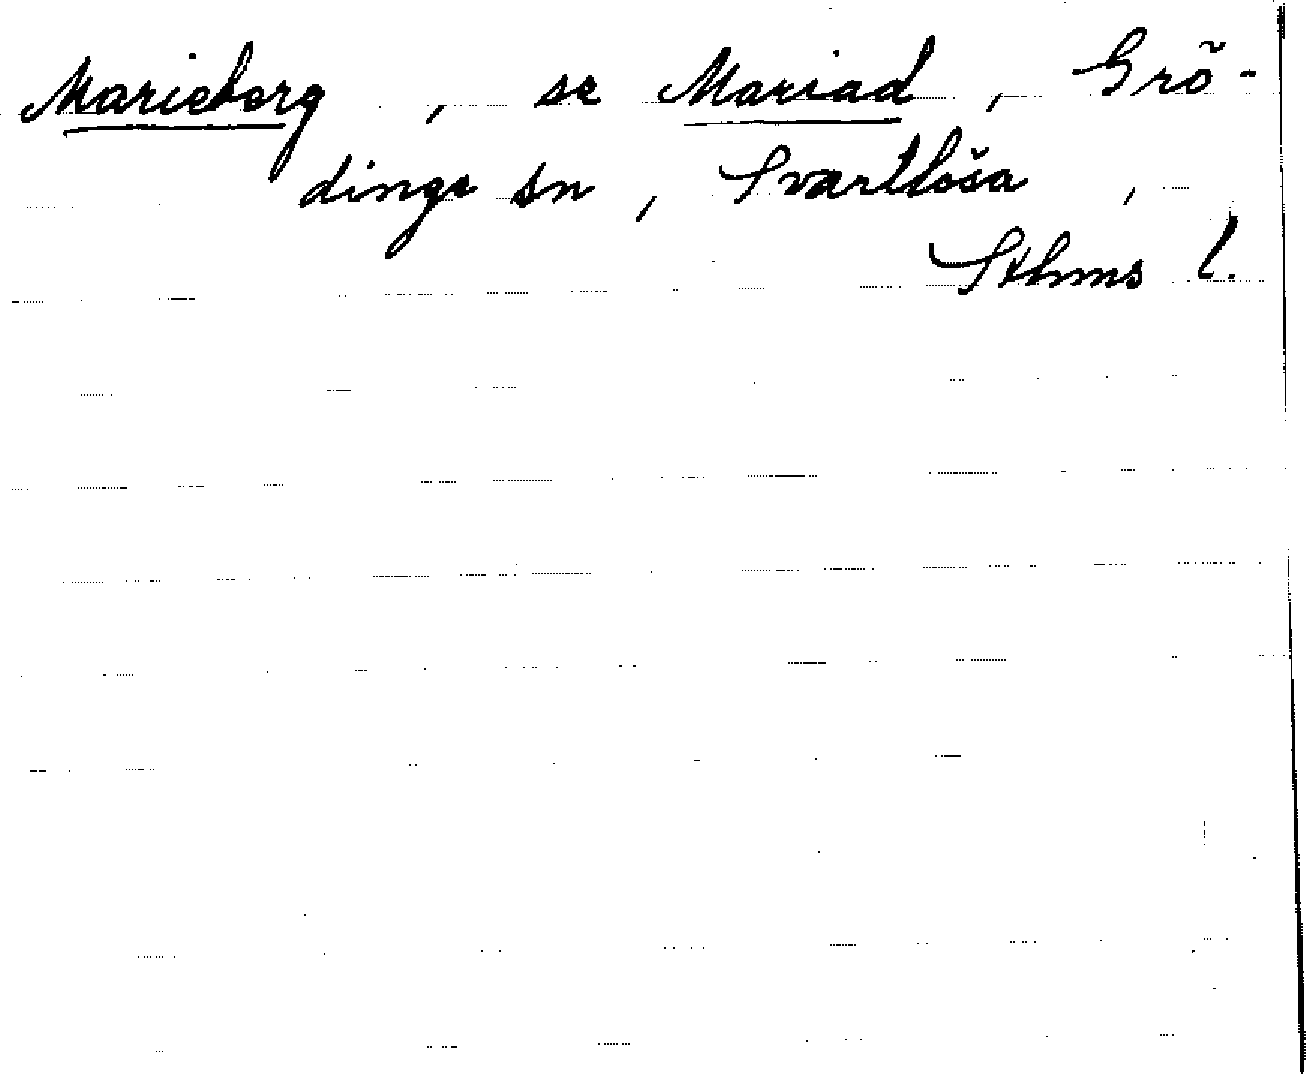 Marieberg, se Mariad, Grö-
dinge sn, Svartlösa,
Sthms l.